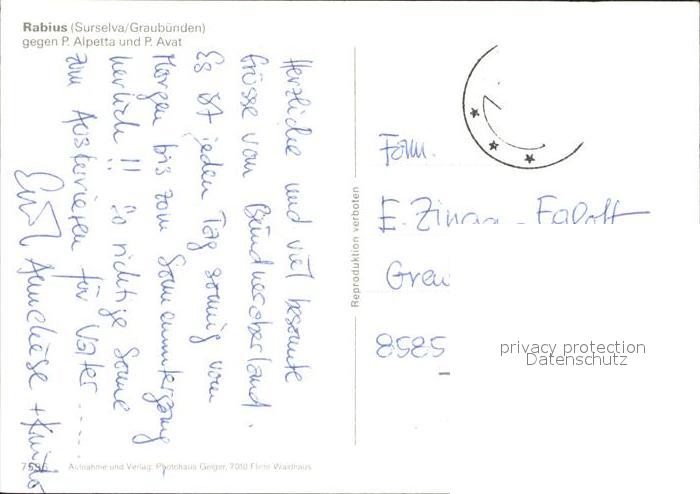 Rabius (Surselva/Graubünden)
gegen P. Alpetta und P. Avat
Herzliche und viel besonnte
Grüsse vom Bündneroberland.
Es ist jeden Tag sonnig vom
Morgen bis zum Sonnenuntergang –
herrlich !! So richtige Sonne
zum für Vater .....
+ Kinder
Reproduktion verboten
Fam.
E.
8585
privacy protection
Datenschutz
Aufnahme und Verlag: Photohaus Geiger, 7018 Flims Waldhaus